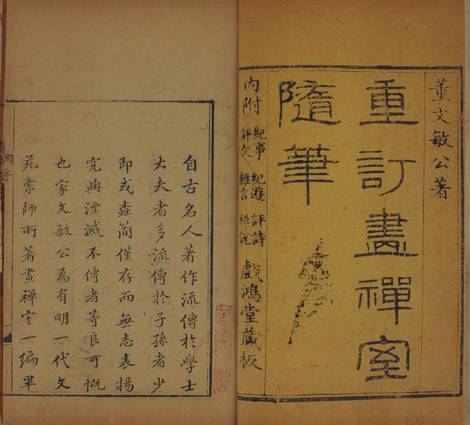 董文敏公著
重訂畫禪室
隨筆
內附 紀事 紀遊 評詩
評文 雜言 禪說
戲鴻堂藏板
自古名人著作流傳於學士
丈夫者多流傳於子孫者少
即或蠹簡僅存而無志表揚
究與湮滅不傳者等良可慨
也家文敏公為有明一代文
苑宗師所著畫禪室一編畢